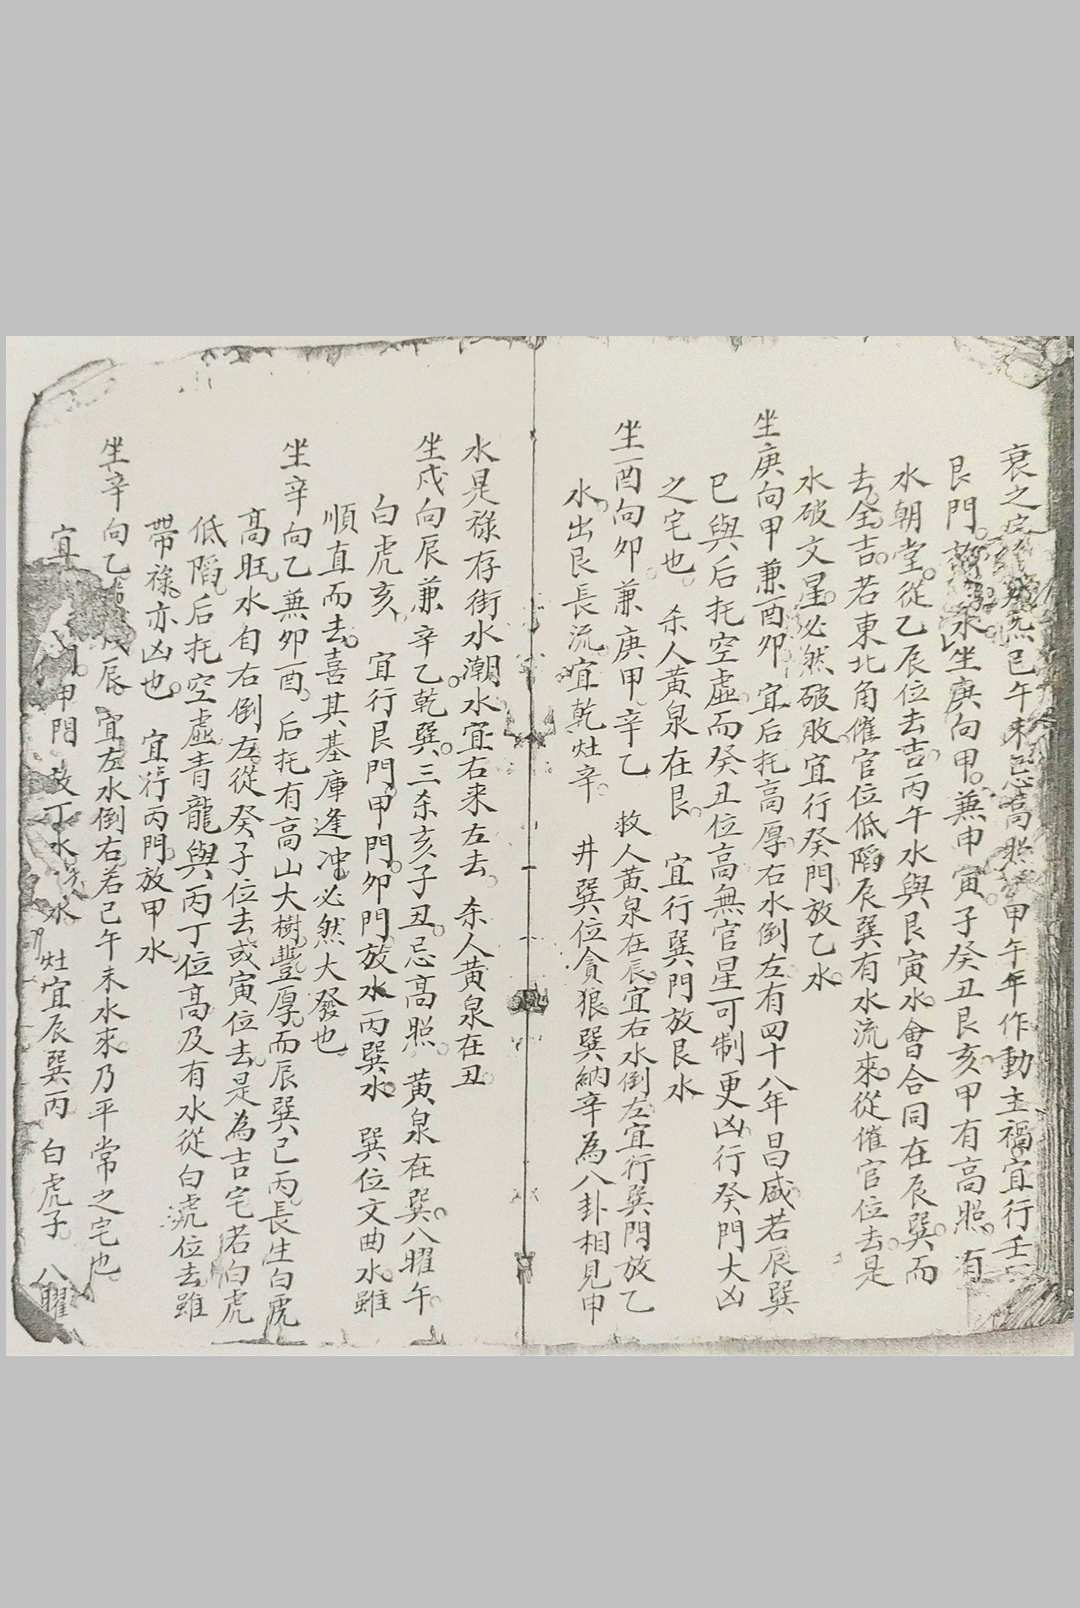 衰之宅 忌巳午未忌高照甲午年作動主福宜行壬
艮門 坐庚向甲兼申寅子癸丑艮亥甲有高照有
水朝堂從乙辰位去吉丙午水與艮寅水會合同在辰巽而
去全吉若東北角催官位低陷辰巽有水流來從催官位去是
水破文星必然破敗宜行癸門放乙水
坐庚向甲兼酉卯宜后托高厚右水倒左有四十八年昌盛若辰巽
巳與后托空虛而癸丑位高無官星可制更凶行癸門大凶
之宅也 杀人黃泉在艮 宜行巽門放艮水
坐酉向卯兼庚甲辛乙 救人黃泉在辰宜右水倒左宜行巽門放乙
水出艮長流宜乾灶辛 井巽位貪狼巽納辛為八卦相見申
水是祿存街水潮水宜右來左去 杀人黃泉在丑
坐戌向辰兼辛乙乾巽三杀亥子丑忌高照黃泉在巽八曜午
白虎亥 宜行艮門甲門卯門放水丙巽水 巽位文曲水雖
順直而去喜其基庫逢冲必然大發也
坐辛向乙兼卯酉后托有高山大樹豐厚而辰巽巳丙長生白虎
高旺水自右倒左從癸子位去或寅位去是為吉宅若白虎
低陷后托空虛青龍與丙丁位高及有水從白虎位去雖
帶祿亦凶也 宜行丙門放甲水
坐辛向乙 戌辰宜左水倒右若巳午未水來乃平常之宅也
宜 門甲門 放丁水 水 灶宜辰巽丙 白虎子 八曜